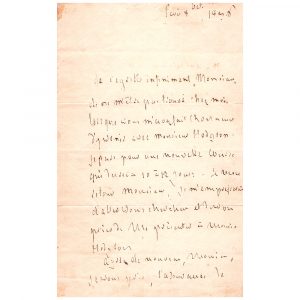 Je regrette infiniment, Monsieur,
de ne m'être pas trouvé chez moi
lorsque vous m'avez fait l'honneur
d'y venir avec monsieur Hodgson
Je pars pour une nouvelle course
qui durera 10 à 12 jours - à mon
retour monsieur, je m'empresserai
d'aller vous chercher et
prier de me présenter à Monsieur
Hodgson.
de nouveau, Monsieur,
je vous prie, l'assurance de